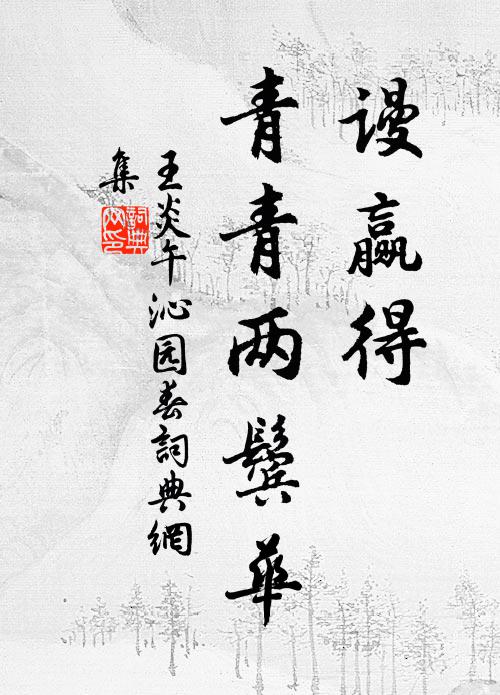 谩赢得
青青两鬓华
王炎午沁园春詞典網
集
詞典網印